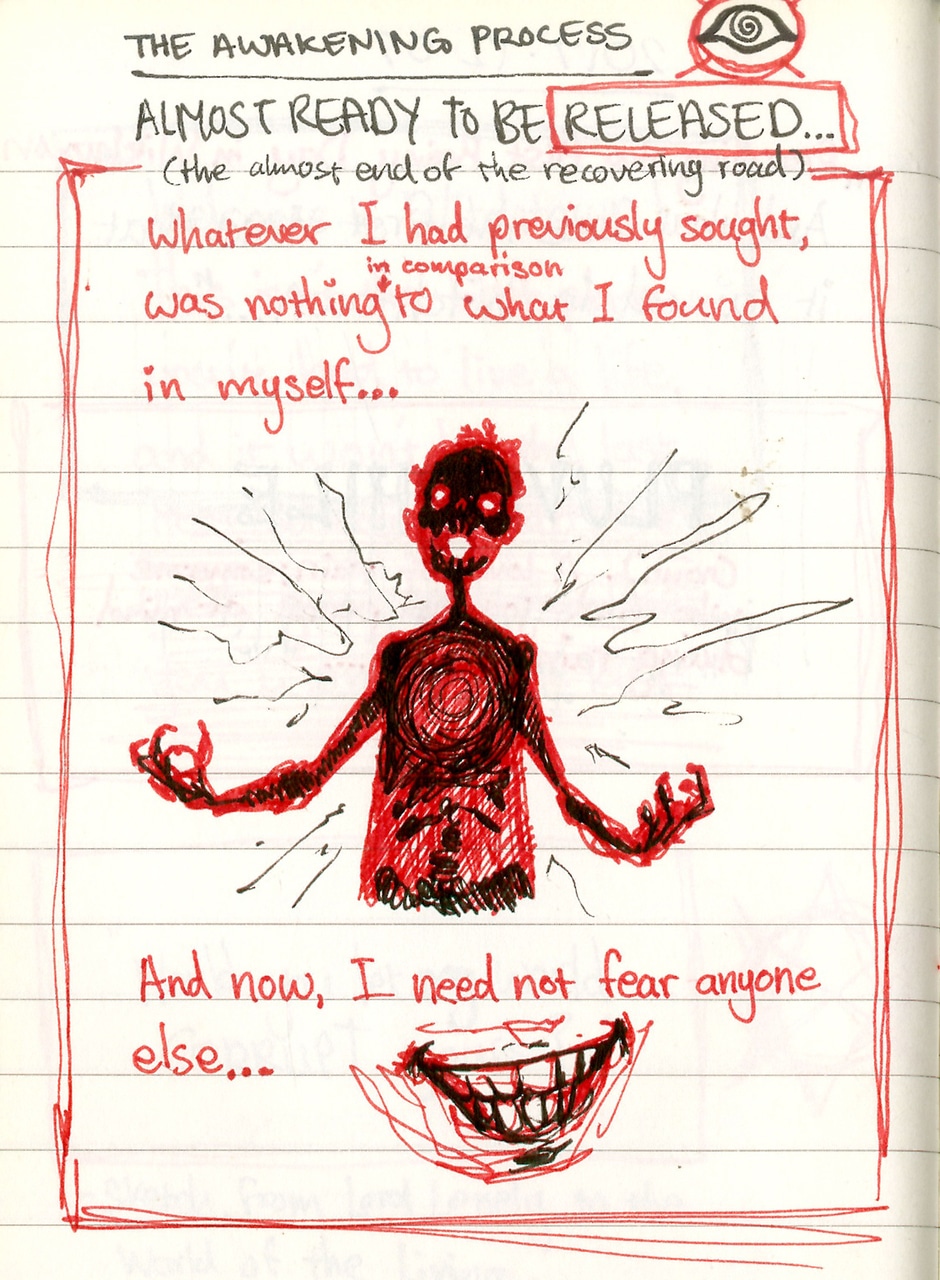 THE AWAKENING PROCESS
ALMOST READY TO BE RELEASED...
(the almost end of the recovering road)
Whatever I had previously sought,
in comparison
was nothing to what I found
in myself...
And now, I need not fear anyone
else...